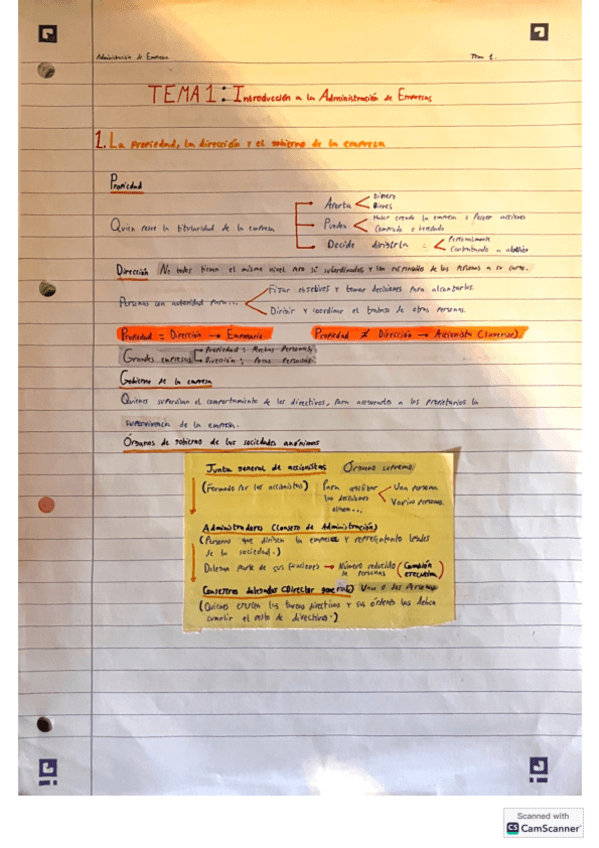 Administración de Empresas
Tema 1.
TEMA 1: Introducción a la Administración de Empresas
1. La propiedad, la dirección y el gobierno de la empresa
Propiedad
Quien posee la titularidad de la empresa
Aporta
Dinero
Bienes
Pueden
Haber creado la empresa o poseer acciones
Comprado o heredado
Decide dirigirla
Personalmente
Contratando a
Dirección No todos tienen el mismo nivel pero si subordinados y son responsables de las personas a su cargo.
Personas con autoridad para...
Fijar objetivos y tomar decisiones para alcanzarlos.
Dirigir y coordinar el trabajo de otras personas.
Propiedad = Dirección → Empresario
Propiedad ≠ Dirección → Accionista (Inversor)
Grandes empresas
Propiedad: Muchas Personas
Dirección: Pocas Personas
Gobierno de la empresa
Quienes supervisan el comportamiento de los directivos, para asegurarles a los propietarios la
supervivencia de la empresa.
Órganos de gobierno de las sociedades anónimas
Junta general de accionistas Órgano supremo
(Formando por los accionistas)
Para agilizar
las decisiones
eligen...
Una persona
Varias personas.
Administradores (Consejo de Administración)
(Personas que dirigen la empresa y representante legales
de la sociedad.)
Delegan parte de sus funciones → Número reducido
de personas
(Comisión
ejecutiva)
Consejeros delegados (Director general) Una o dos
(Quienes ejercen las tareas directivas y sus órdenes las deben
cumplir el resto de directivos.)
Scanned with
CS CamScanner